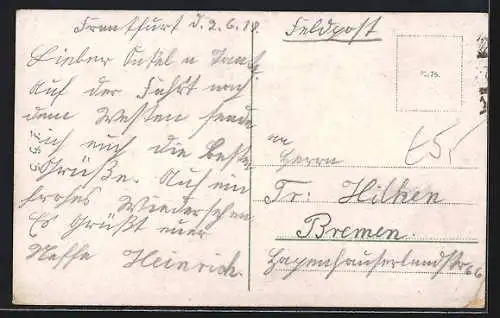 Frankfurt d. 2.6.18.
Lieber Onkel u Tante
Auf der Fahrt nach
dem Westen sende
ich euch die besten
Grüße. Auf ein
frohes Wiedersehen
Es Grüßt euer
Neffe Heinrich.
Feldpost
An
Herrn
Fr: Hilken
Bremen.